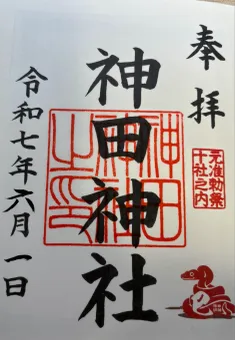 奉拝
元准勅祭
十社之内
神田神社
神田
神社
之印
令和七年六月一日